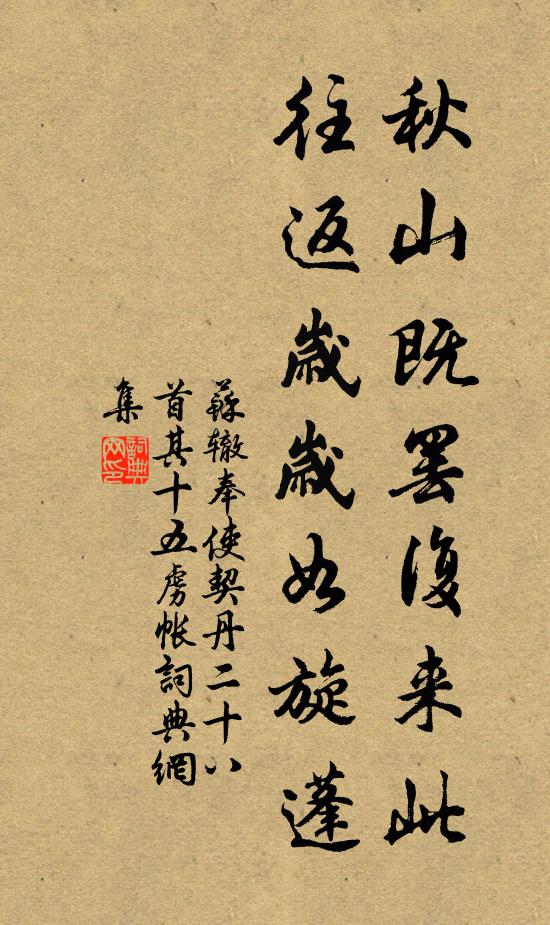 秋山既罢復来此
往返歲歲如旋蓬
蘇辙奉使契丹二十八
首其十五虏帐詞典網
集
詞典
网印